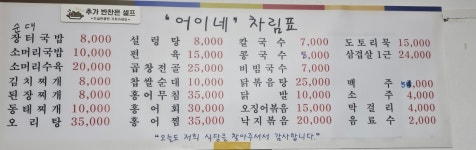 추가 반찬은 셀프
"어이네" 차림표
순대
장터국밥 8,000 설렁탕 8,000 칼국수 7,000 도토리묵 15,000
소머리국밥 10,000 편육 15,000 콩국수 8,000 삼겹살 1근 24,000
소머리수육 20,000 곱창전골 25,000 비빔국수 7,000
김치찌개 8,000 찹쌀순대 10,000 닭볶음탕 25,000 맥주 ,000
된장찌개 8,000 홍어무침 35,000 닭발 10,000 소주 4,000
동태찌개 10,000 홍어회 30,000 오징어볶음 15,000 막걸리 4,000
오리탕 35,000 홍어찜 35,000 낙지볶음 20,000 음료수 2,000
"오늘도 저희 식당을 찾아주셔서 감사합니다."